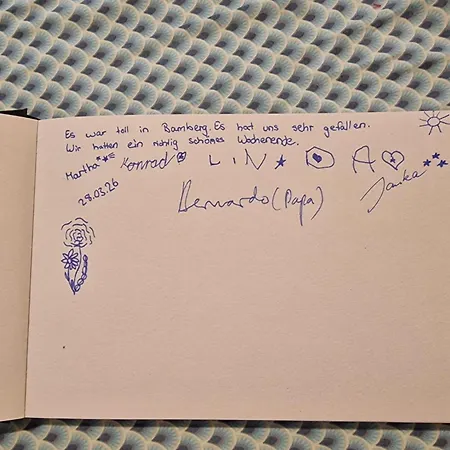 Es war toll in Bamberg. Es hat uns sehr gefallen.
Wir hatten ein richtig schönes Wochenende.
Martha Konrad LINDA Janka
28.03.26
Bernardo (Papa)